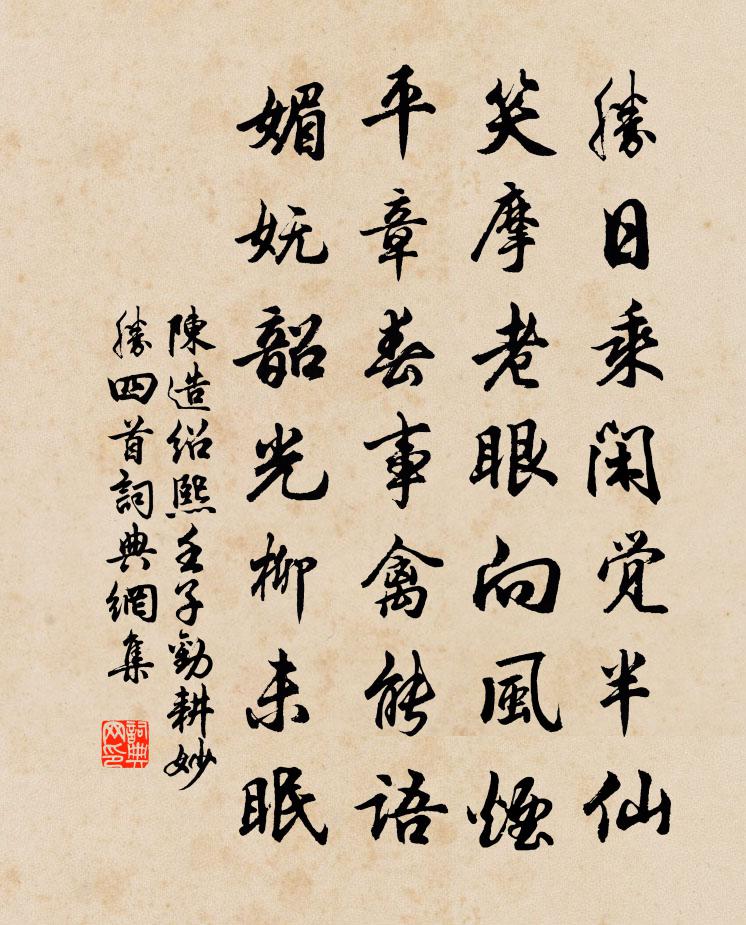 勝日乘閑覺半仙
笑摩老眼向風煙
平章春事禽能語
媚嫵韶光柳未眠
陳造紹熙壬子勸耕妙
勝四首詞典網集
詞典
网印